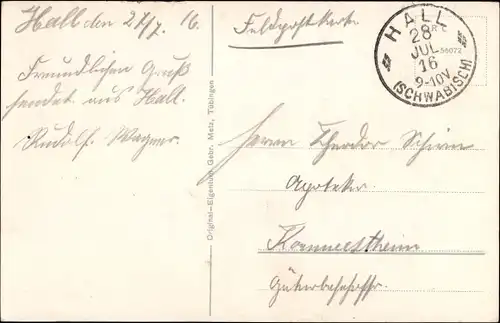 Hall den 27/7. 16.
Freundlichen Gruß
sendet aus Hall.
Rudolf. Wagner.
Original-Eigentum Gebr. Metz, Tübingen
Feldpostkarte
HALL
28
JUL
16
9-10V
(SCHWÄBISCH)
56072
Herrn Theodor Schirm
Apoteker
Kornwestheim